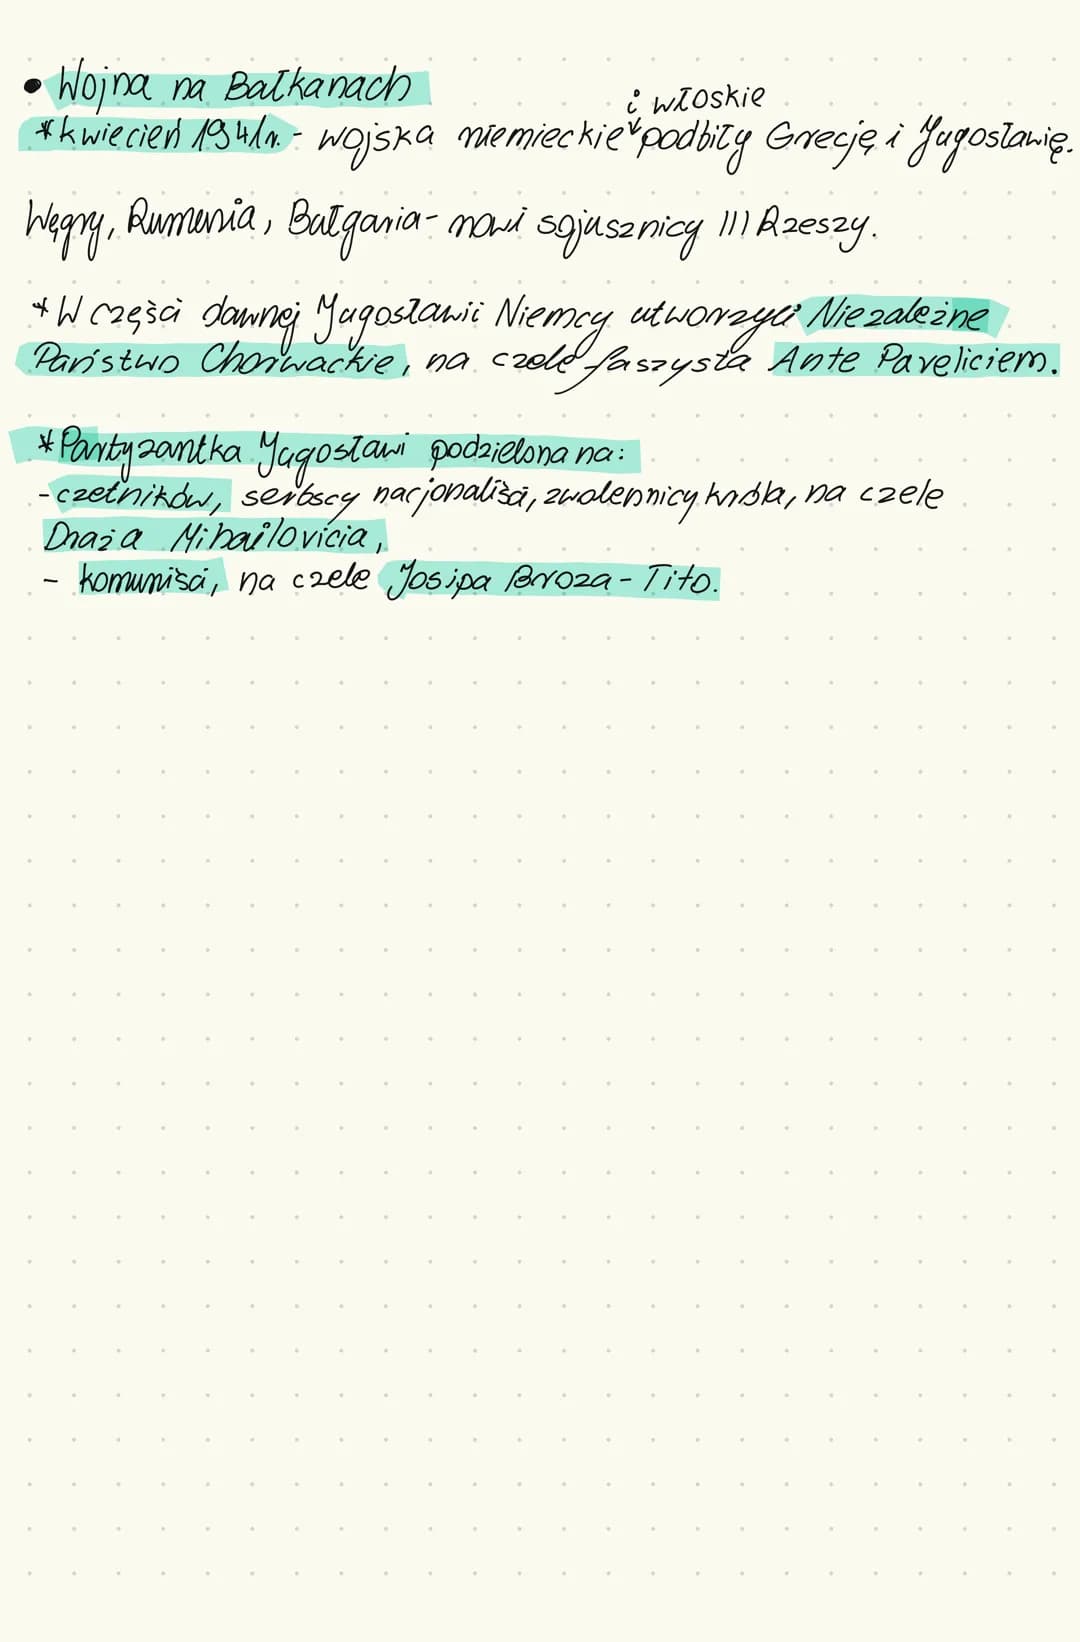 • Wojna na Bałkanach
i włoskie
*kwiecień 1941r. - wojska niemieckie podbiły Grecję i Jugosławię.
Węgry, Rumunia, Bułgaria - nowi sojusznicy III Rzeszy.
*W części dawnej Jugosławii Niemcy utworzyli Niezależne
Państwo Chorwackie, na czele faszysta Ante Paveliciem.
*Partyzantka Jugosławi podzielona na:
- czetników, serbscy nacjonaliści, zwolennicy króla, na czele
Draża Mihailovicia,
- komuniści, na czele Josipa Broza - Tito.